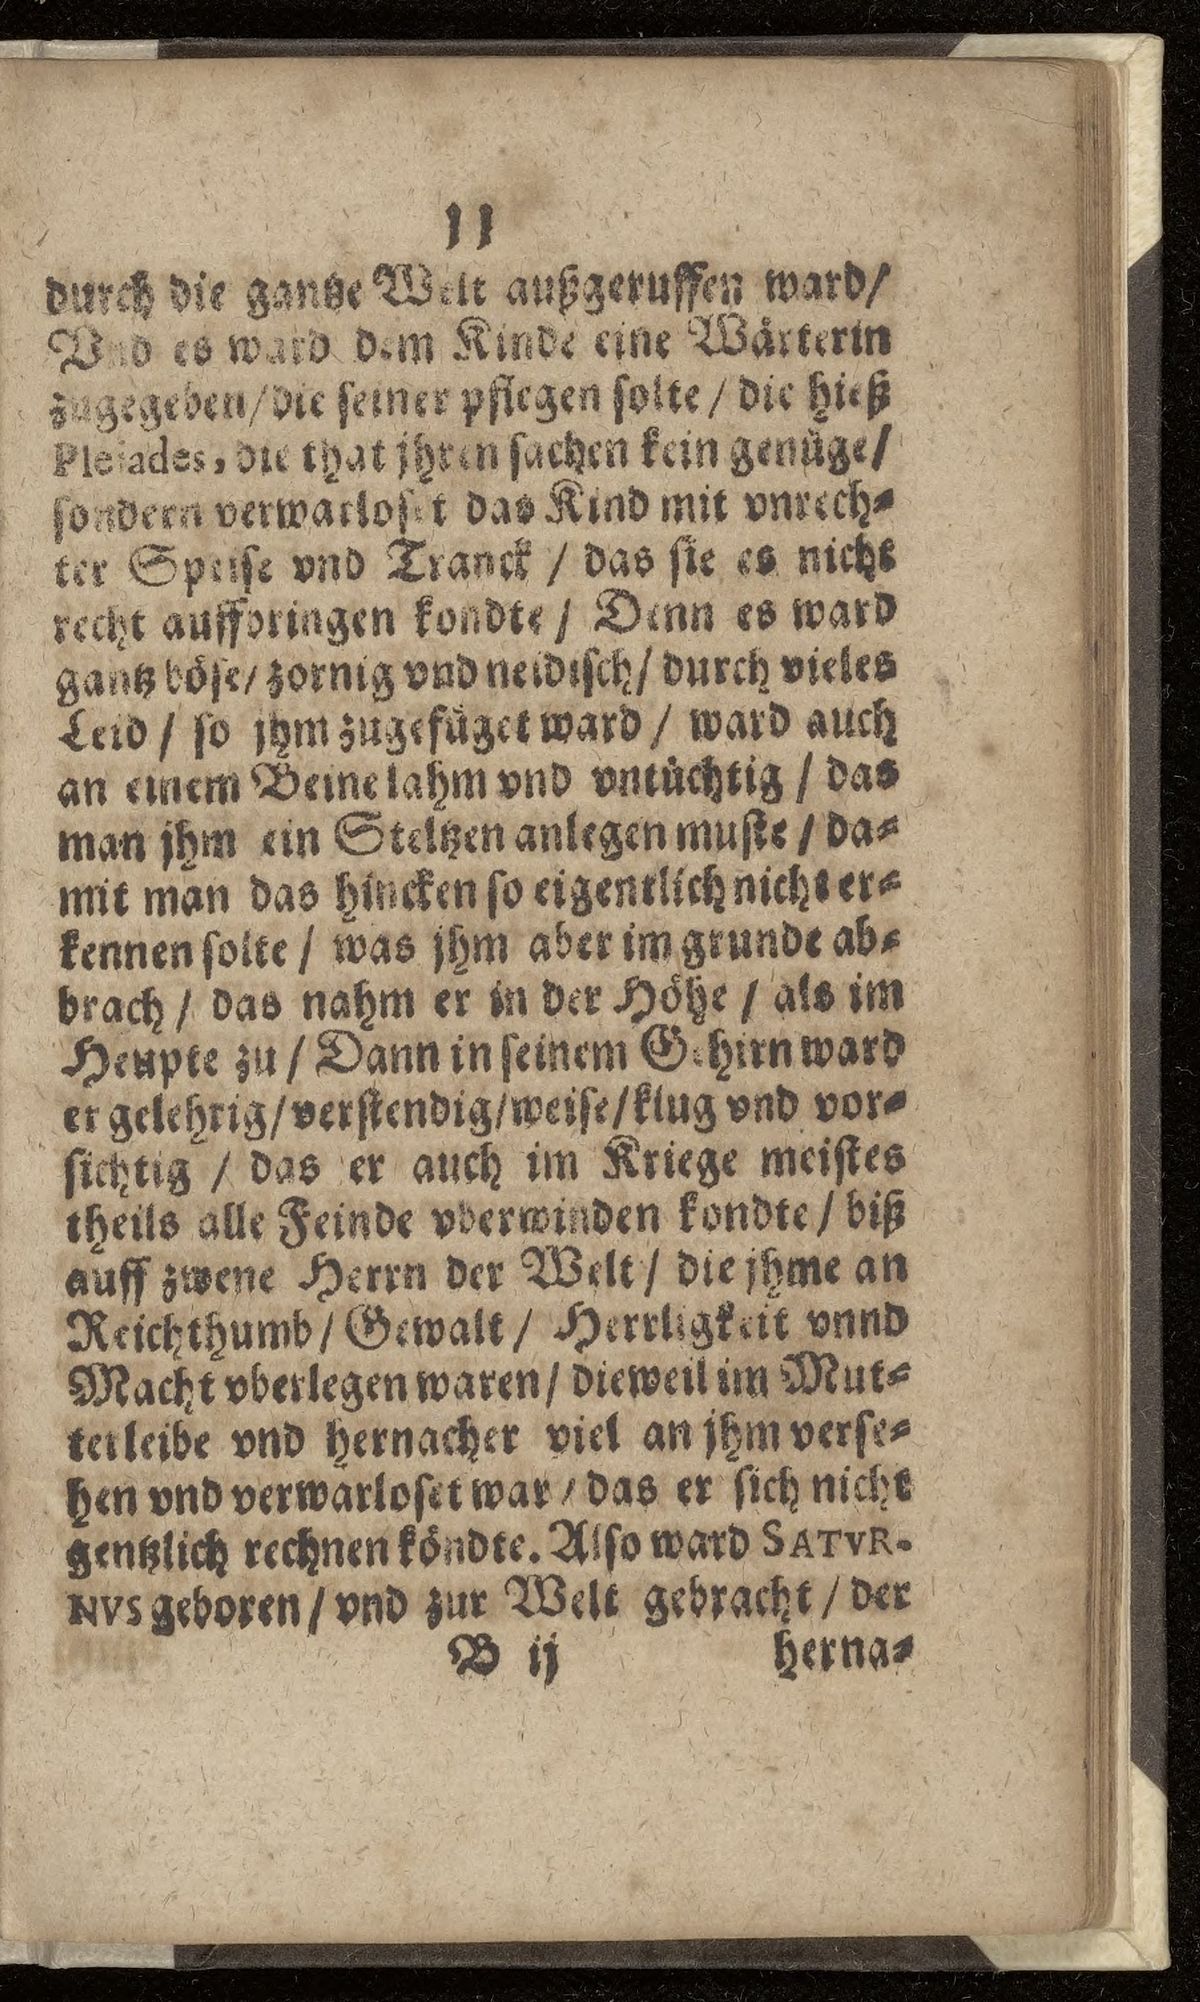 11
durch die gantze Welt außgeruffen ward/
Vnd es ward dem Kinde eine Wärterin
zugegeben/die seiner pflegen solte/die hieß
Pleiades, die that jhren sachen kein genüge/
sondern verwarloset das Kind mit vnrech-
ter Speise vnd Tranck / das sie es nicht
recht auffbringen kondte/ Denn es ward
gantz böse/zornig vnd neidisch/durch vieles
Leid / so jhm zugefüget ward / ward auch
an einem Beine lahm vnd vntüchtig / das
man jhm ein Steltzen anlegen muste / da-
mit man das hincken so eigentlich nicht er-
kennen solte / was jhm aber im grunde ab-
brach / das nahm er in der Höhe / als im
Heupte zu / Dann in seinem Gehirn ward
er gelehrig/verstendig/weise/klug vnd vor-
sichtig / das er auch im Kriege meistes
theils alle Feinde vberwinden kondte / biß
auff zwene Herrn der Welt / die jhme an
Reichthumb/ Gewalt / Herrligkeit vnnd
Macht vberlegen waren/ dieweil im Mut-
terleibe vnd hernacher viel an jhm verse-
hen vnd verwarloset war / das er sich nicht
gentzlich rechnen köndte. Also ward SATVR-
NVS geboren / vnd zur Welt gebracht / der
B ij herna-